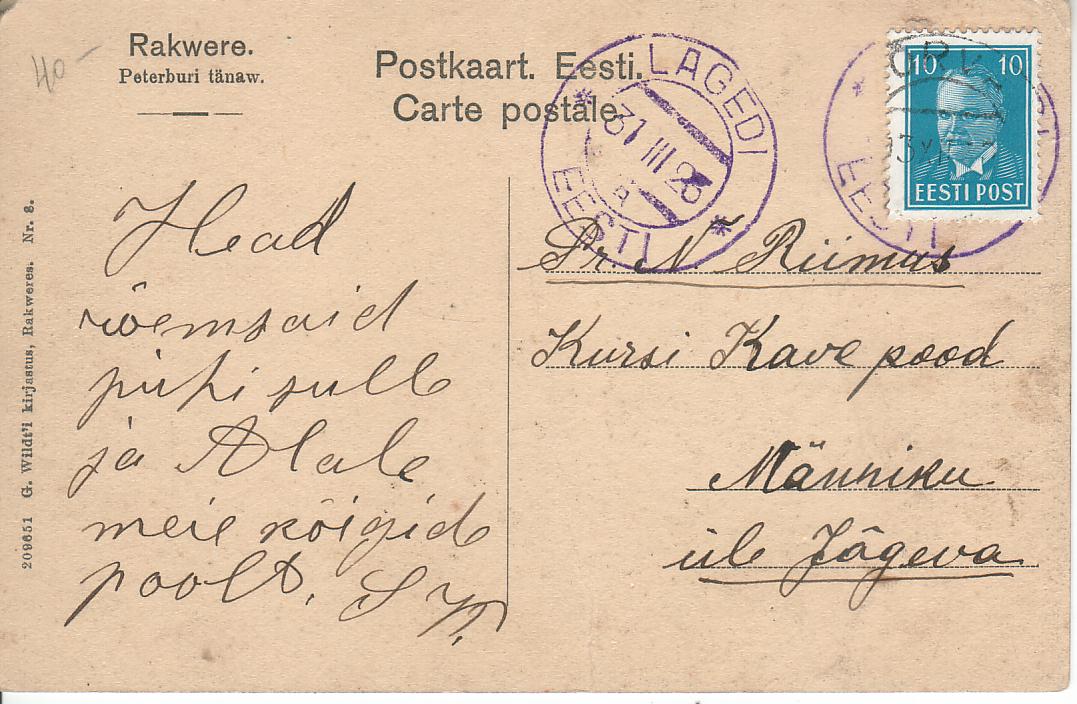 40-
Rakwere.
Peterburi tänaw.
Postkaart. Eesti.
Carte postale.
LAGEDI
31 III 26
A
EESTI
EESTI
10 10
EESTI POST
209651 G. Wildt'i kirjastus, Rakweres. Nr. 8.
Head
rõemsaid
pühi sulle
ja Alale
meie kõigid
poolt.
Pr. N. Riimus
Kursi Kave pood
Männiku
üle Jõgeva